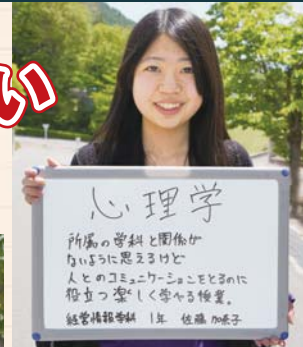 い
心理学
所属の学科と関係が
ないように思えるけど
人とのコミュニケーションをとるのに
役立つ楽しく学べる授業。
経営情報学科 1年 佐藤 加奈子